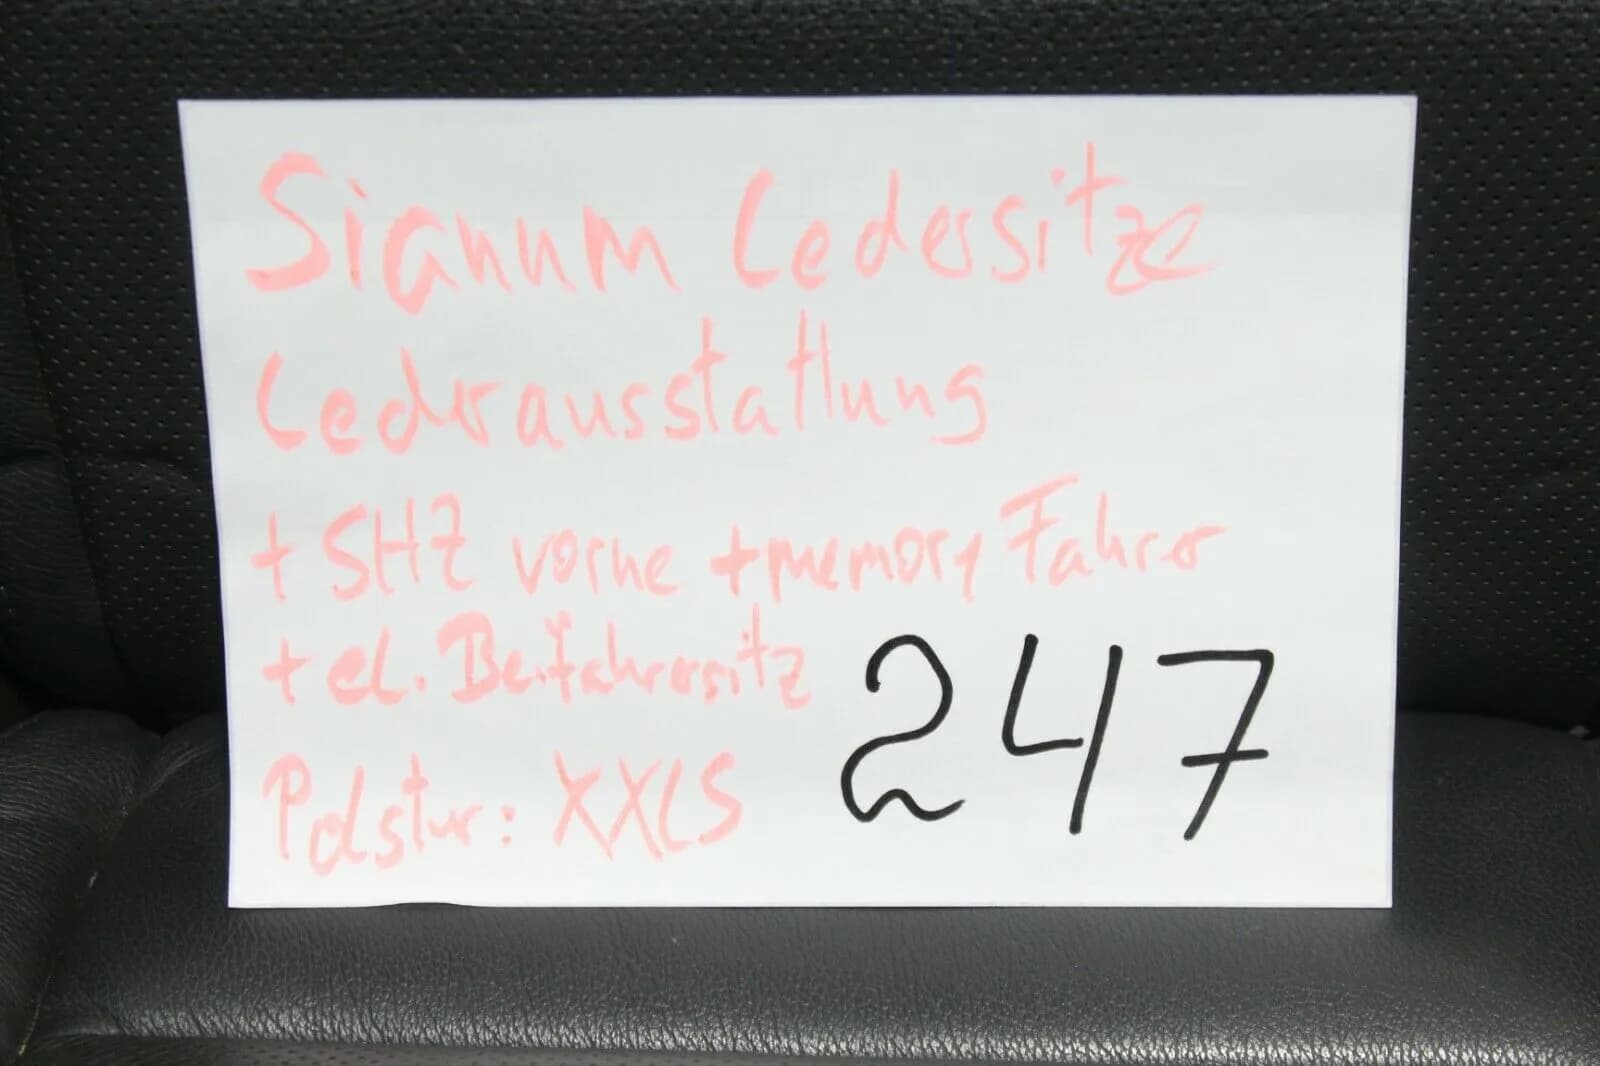 Signum Ledersitze
Lederausstattung
+ SHZ vorne + memory Fahrer
+ el. Beifahrersitz
Polstur: XXLS
247